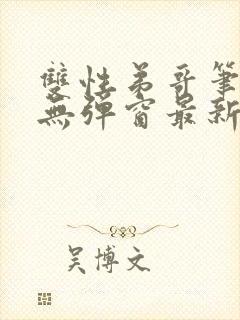 雙性弟哥筆
無彈窗最新
吴博文